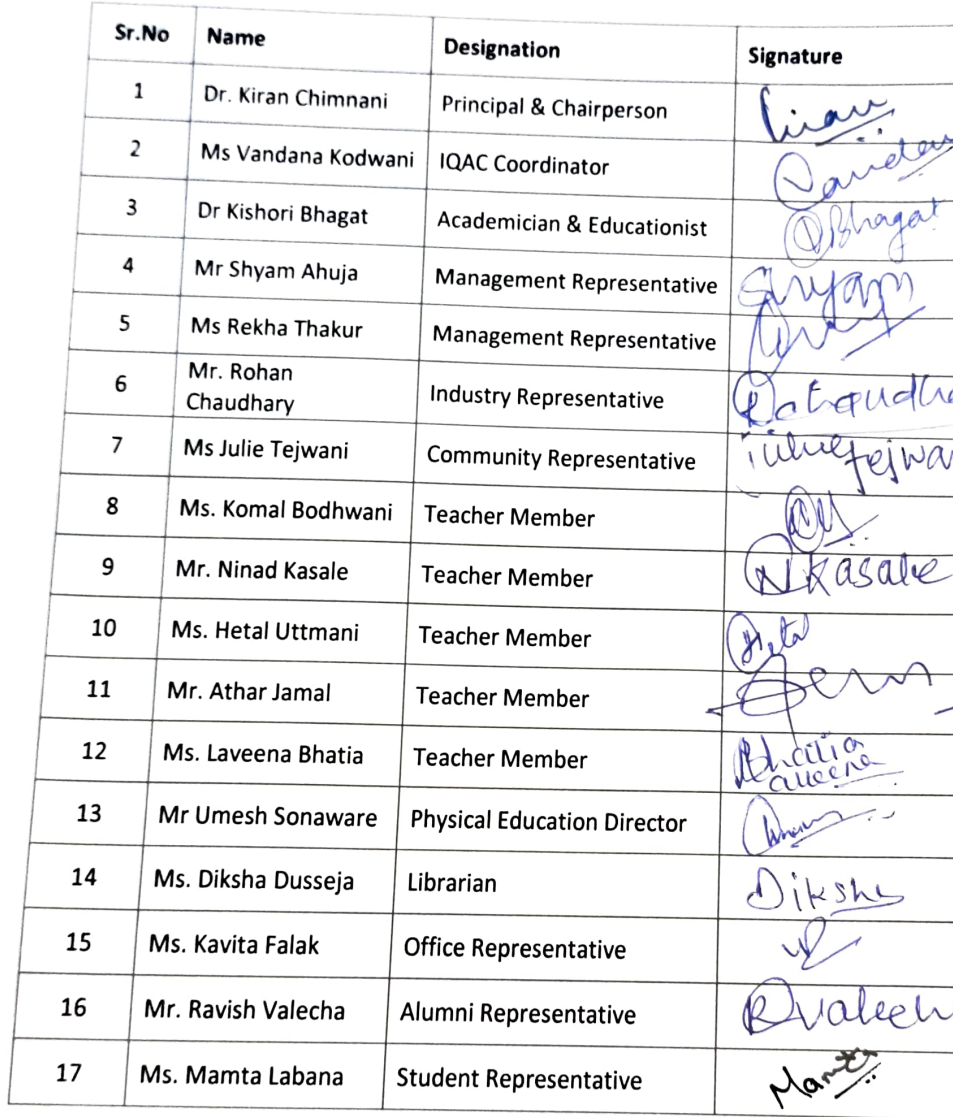 Sr.No Name Designation Signature
1 Dr. Kiran Chimnani Principal & Chairperson Kiran
2 Ms Vandana Kodwani IQAC Coordinator
3 Dr Kishori Bhagat Academician & Educationist Bhagat
4 Mr Shyam Ahuja Management Representative Shyam
5 Ms Rekha Thakur Management Representative
6 Mr. Rohan
Chaudhary Industry Representative
7 Ms Julie Tejwani Community Representative
8 Ms. Komal Bodhwani Teacher Member
9 Mr. Ninad Kasale Teacher Member NKasale
10 Ms. Hetal Uttmani Teacher Member
11 Mr. Athar Jamal Teacher Member
12 Ms. Laveena Bhatia Teacher Member Bhatia
13 Mr Umesh Sonaware Physical Education Director
14 Ms. Diksha Dusseja Librarian Diksha
15 Ms. Kavita Falak Office Representative
16 Mr. Ravish Valecha Alumni Representative
17 Ms. Mamta Labana Student Representative Mamta